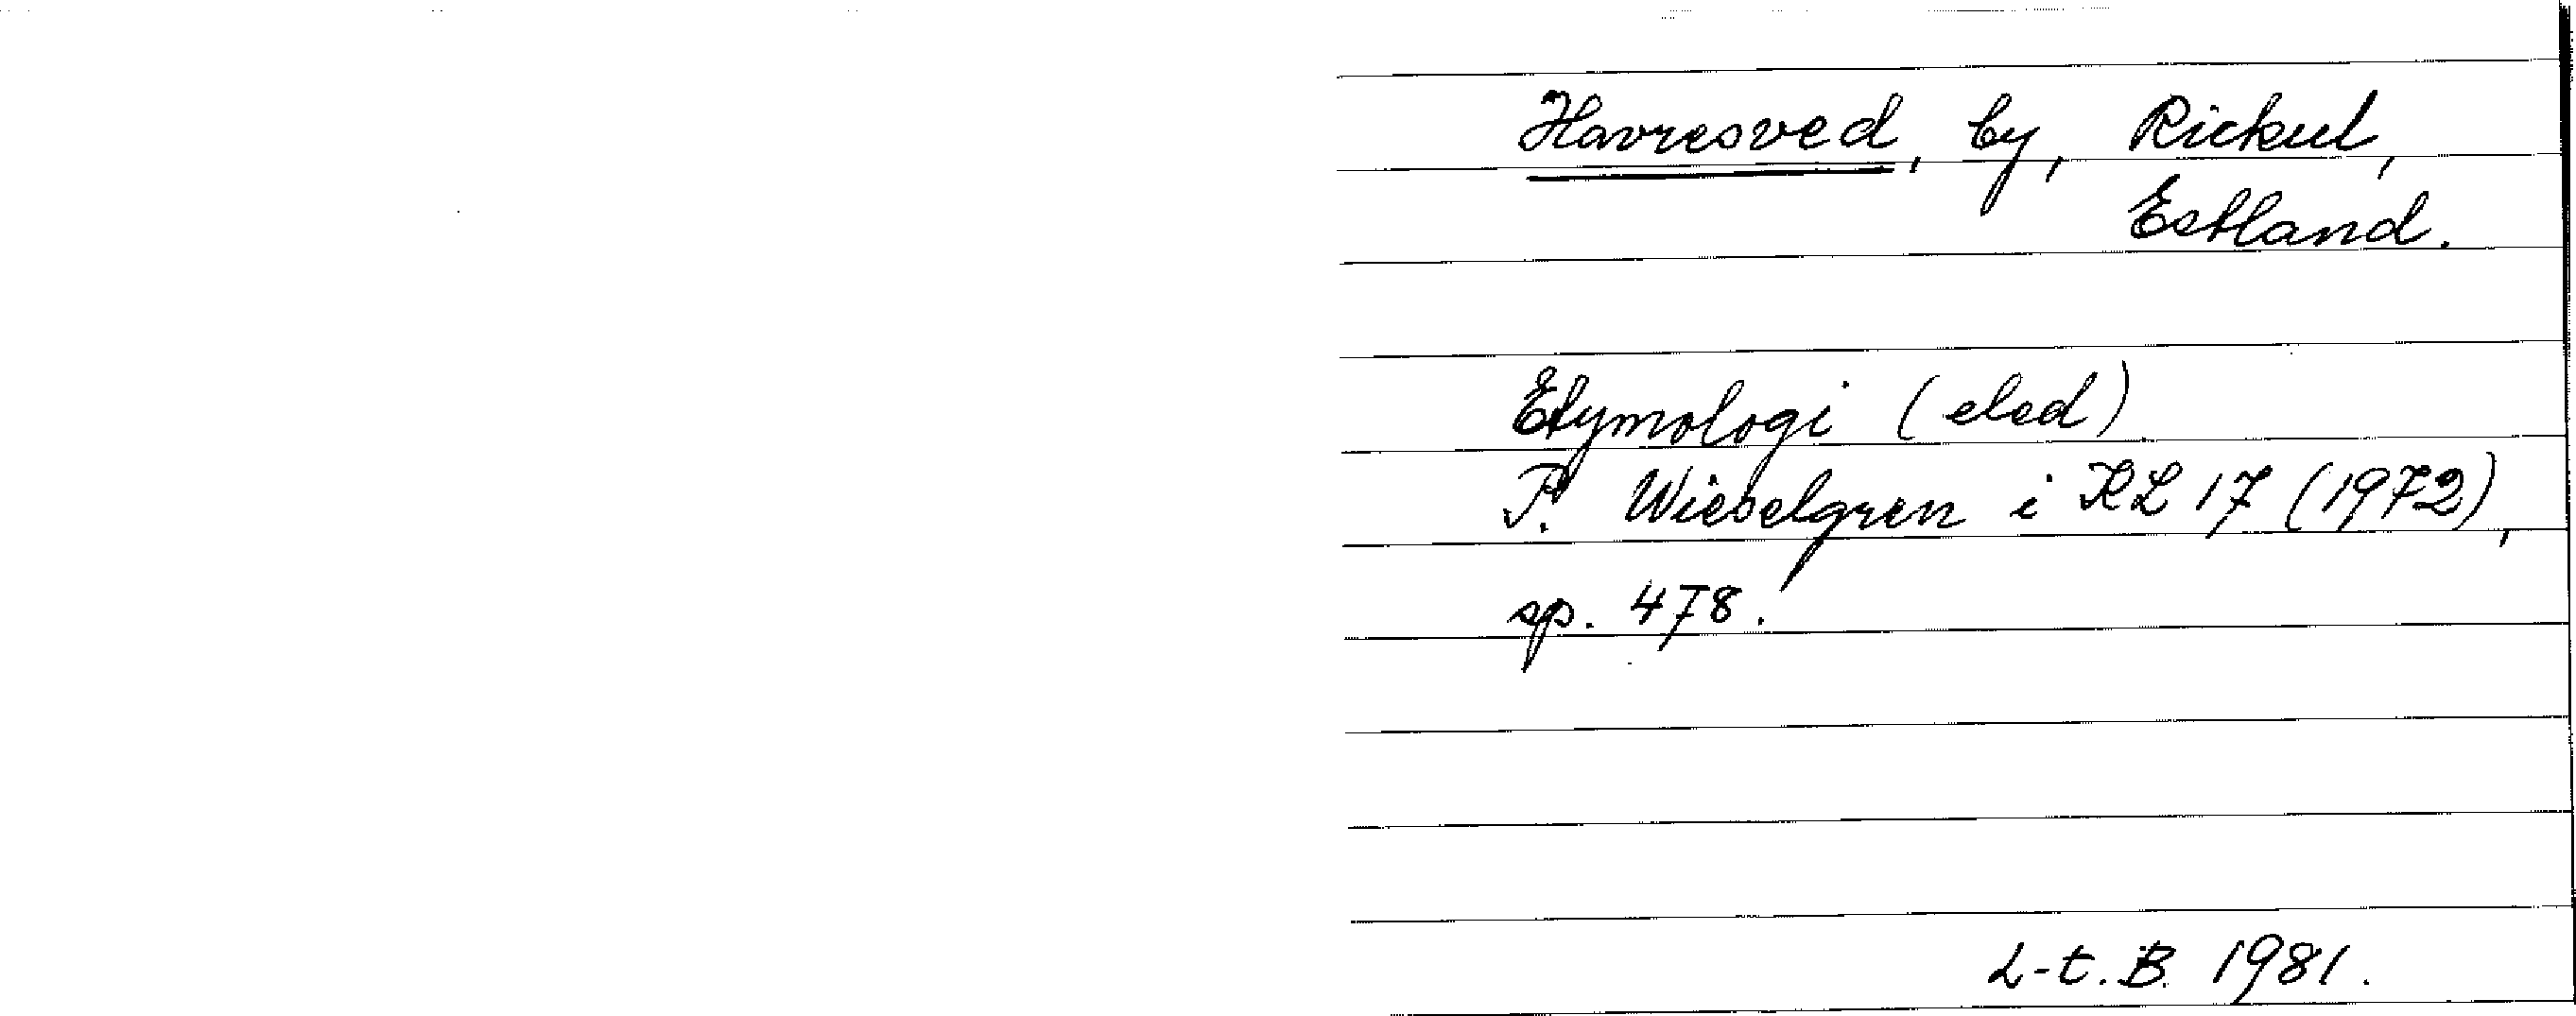 Havresved, by, Rickul,
Estland.
Etymologi (eled)
P. Wieselgren i KL 17 (1972),
sp. 478.
L-t. B. 1981.